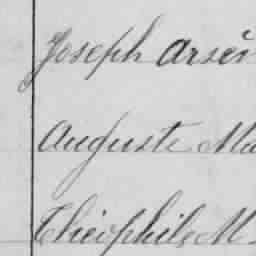 Joseph Arsèn
Auguste Ma
Théophile M